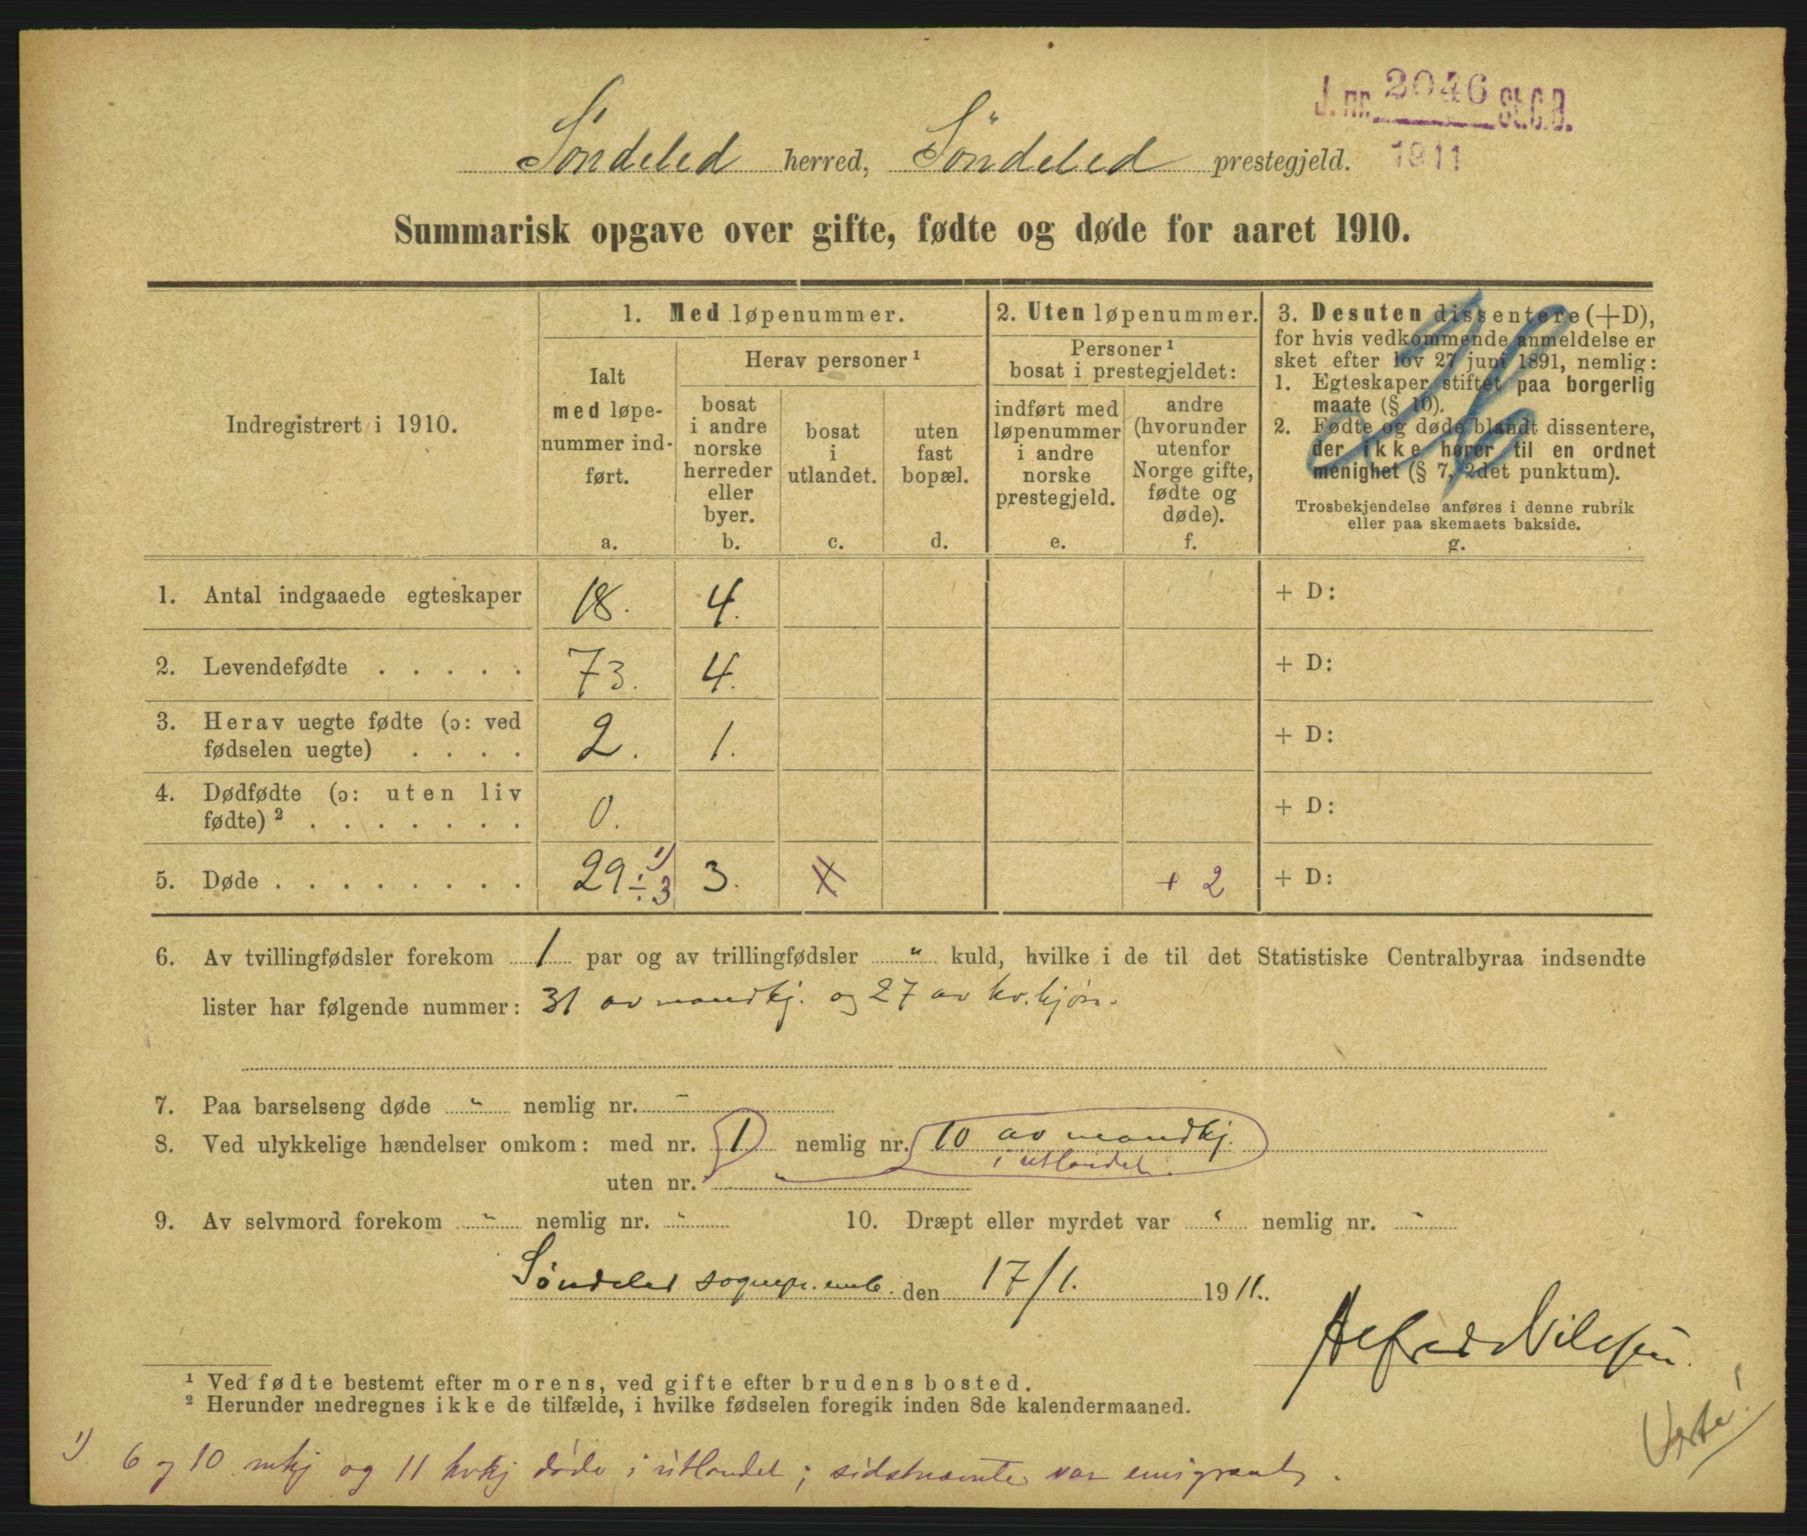 J. nr. 2046 St.C.B.
1911
Søndeled herred, Søndeled prestegjeld.
Summarisk opgave over gifte, fødte og døde for aaret 1910.
Indregistrert i 1910.
1. Med løpenummer.
Ialt
med løpe-
nummer ind-
ført.
a.
Herav personer¹
bosat
i andre
norske
herreder
eller
byer.
b.
bosat
i
utlandet.
c.
uten
fast
bopæl.
d.
2. Uten løpenummer.
Personer¹
bosat i prestegjeldet:
indført med
løpenummer
i andre
norske
prestegjeld.
e.
andre
(hvorunder
utenfor
Norge gifte,
fødte og
døde).
f.
3. Desuten dissentere (+D),
for hvis vedkommende anmeldelse er
sket efter lov 27 juni 1891, nemlig:
1. Egteskaper stiftet paa borgerlig
maate (§ 10).
2. Fødte og døde blandt dissentere,
der ikke hører til en ordnet
menighet (§ 7, 2det punktum).
Trosbekjendelse anføres i denne rubrik
eller paa skemaets bakside.
g.
1. Antal indgaaede egteskaper 18. 4. + D:
2. Levendefødte . . . . . 73. 4. + D:
3. Herav uegte fødte (ɔ: ved
fødselen uegte) . . . . 2. 1. + D:
4. Dødfødte (ɔ: uten liv
fødte)² . . . . . . . 0. + D:
5. Døde . . . . . . . . 29 ÷ 3 ¹) 3. + 2 + D:
6. Av tvillingfødsler forekom 1 par og av trillingfødsler " kuld, hvilke i de til det Statistiske Centralbyraa indsendte
lister har følgende nummer: 31 av mandkj. og 27 av kv.kjøn.
7. Paa barselseng døde " nemlig nr. "
8. Ved ulykkelige hændelser omkom: med nr. 1 nemlig nr. 10 av mandkj.
i utlandet.
uten nr. "
9. Av selvmord forekom " nemlig nr. " 10. Dræpt eller myrdet var " nemlig nr. "
Søndeled sognepr.emb. den 17/1. 1911.
Alfred Nilsen
¹ Ved fødte bestemt efter morens, ved gifte efter brudens bosted.
² Herunder medregnes ikke de tilfælde, i hvilke fødselen foregik inden 8de kalendermaaned.
Verte!
¹) 6 og 10 mkj og 11 kvkj døde i utlandet; sidstnævnte var emigrant.